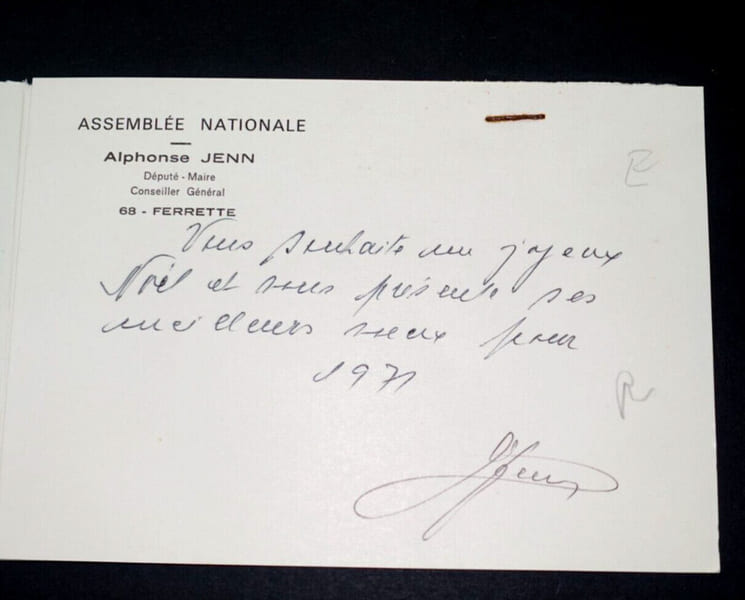 ASSEMBLÉE NATIONALE
Alphonse JENN
Député - Maire
Conseiller Général
68 - FERRETTE
Vous souhaite un joyeux
Noël et vous présente ses
meilleurs vœux pour
1971
Jenn